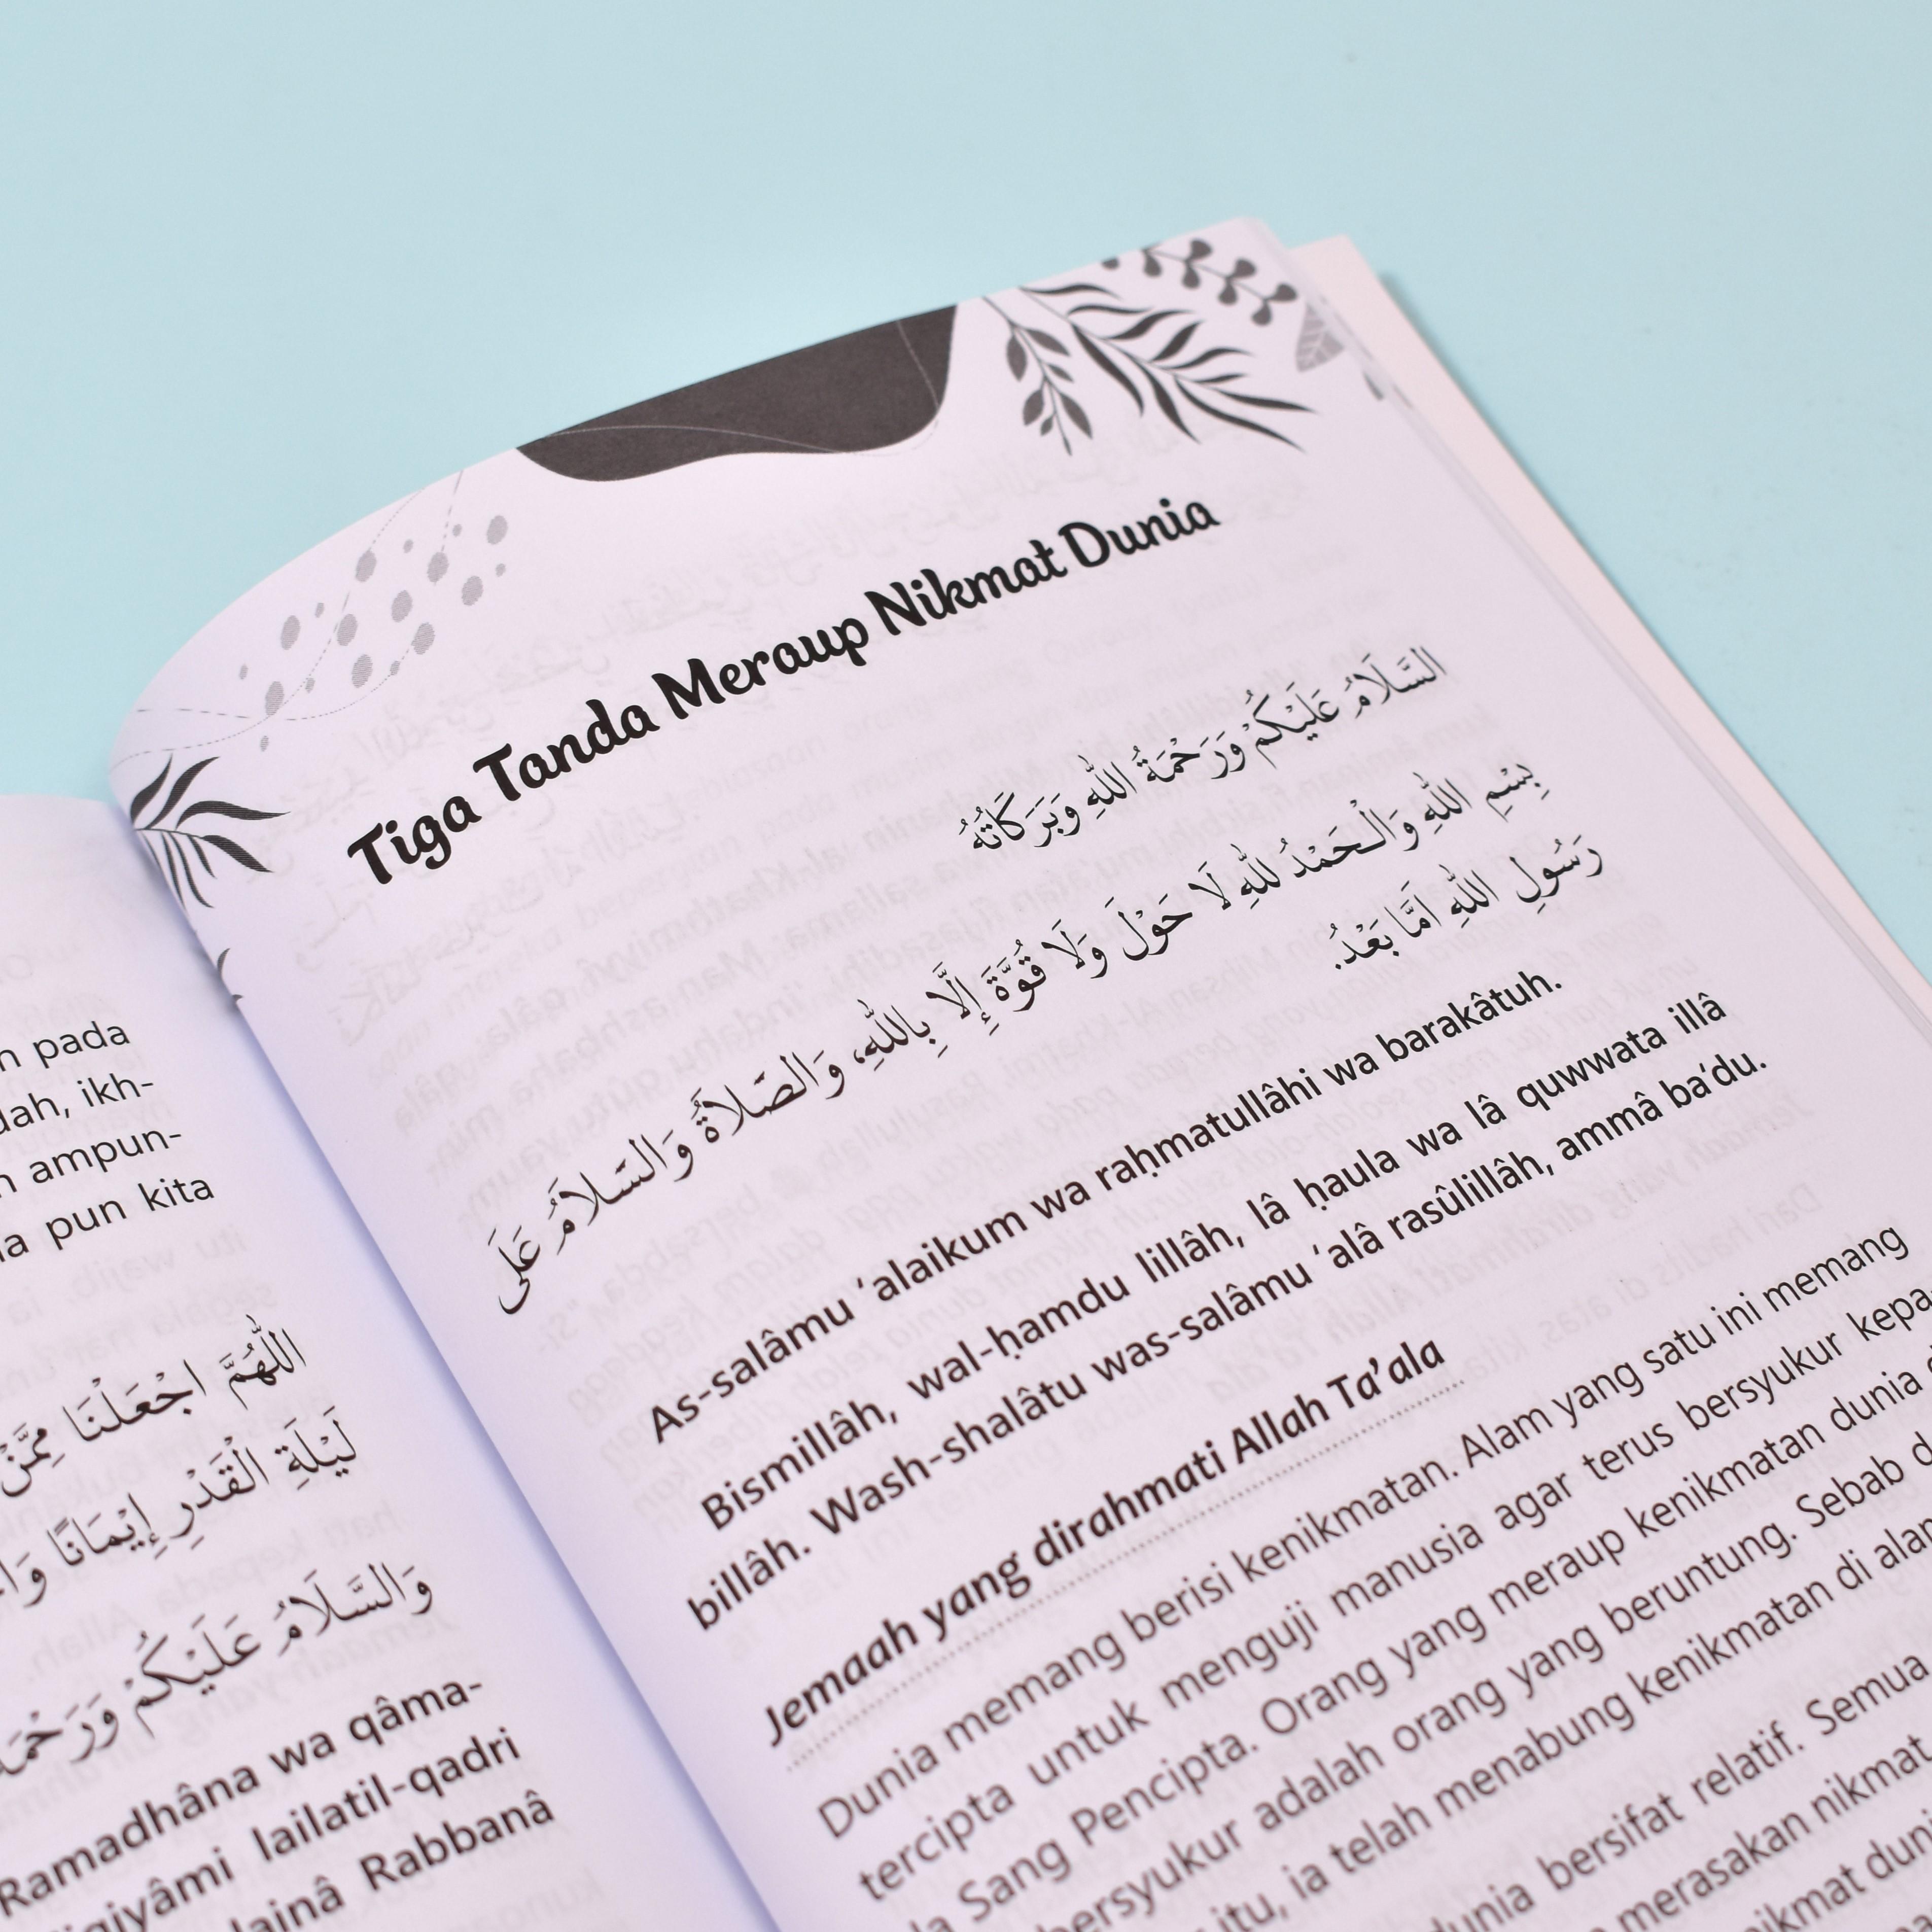 n pada
dah, ikh-
n ampun-
la pun kita
اللّٰهُمَّ اجْعَلْنَا مِمَّنْ
لَيْلَةِ الْقَدْرِ إِيْمَانًا
وَالسَّلَامُ عَلَيْكُمْ
Ramadhâna wa qâma-
lailatil-qadri
Rabbanâ
Tiga Tanda Meraup Nikmat Dunia
السَّلَامُ عَلَيْكُمْ وَرَحْمَةُ اللّٰهِ وَبَرَكَاتُهُ
بِسْمِ اللّٰهِ وَالْحَمْدُ لِلّٰهِ لَا حَوْلَ وَلَا قُوَّةَ إِلَّا بِاللّٰهِ، وَالصَّلَاةُ وَالسَّلَامُ عَلَى
رَسُولِ اللّٰهِ اَمَّا بَعْدُ.
As-salâmu ‘alaikum wa raḥmatullâhi wa barakâtuh.
Bismillâh, wal-ḥamdu lillâh, lâ ḥaula wa lâ quwwata illâ
billâh. Wash-shalâtu was-salâmu ‘alâ rasûlillâh, ammâ ba‘du.
Jemaah yang dirahmati Allah Ta’ala
Dunia memang berisi kenikmatan. Alam yang satu ini memang
tercipta untuk menguji manusia agar terus bersyukur kepa-
da Sang Pencipta. Orang yang meraup kenikmatan dunia
bersyukur adalah orang yang beruntung. Sebab
itu, ia telah menabung kenikmatan di alam
dunia bersifat relatif. Semua
merasakan nikmat